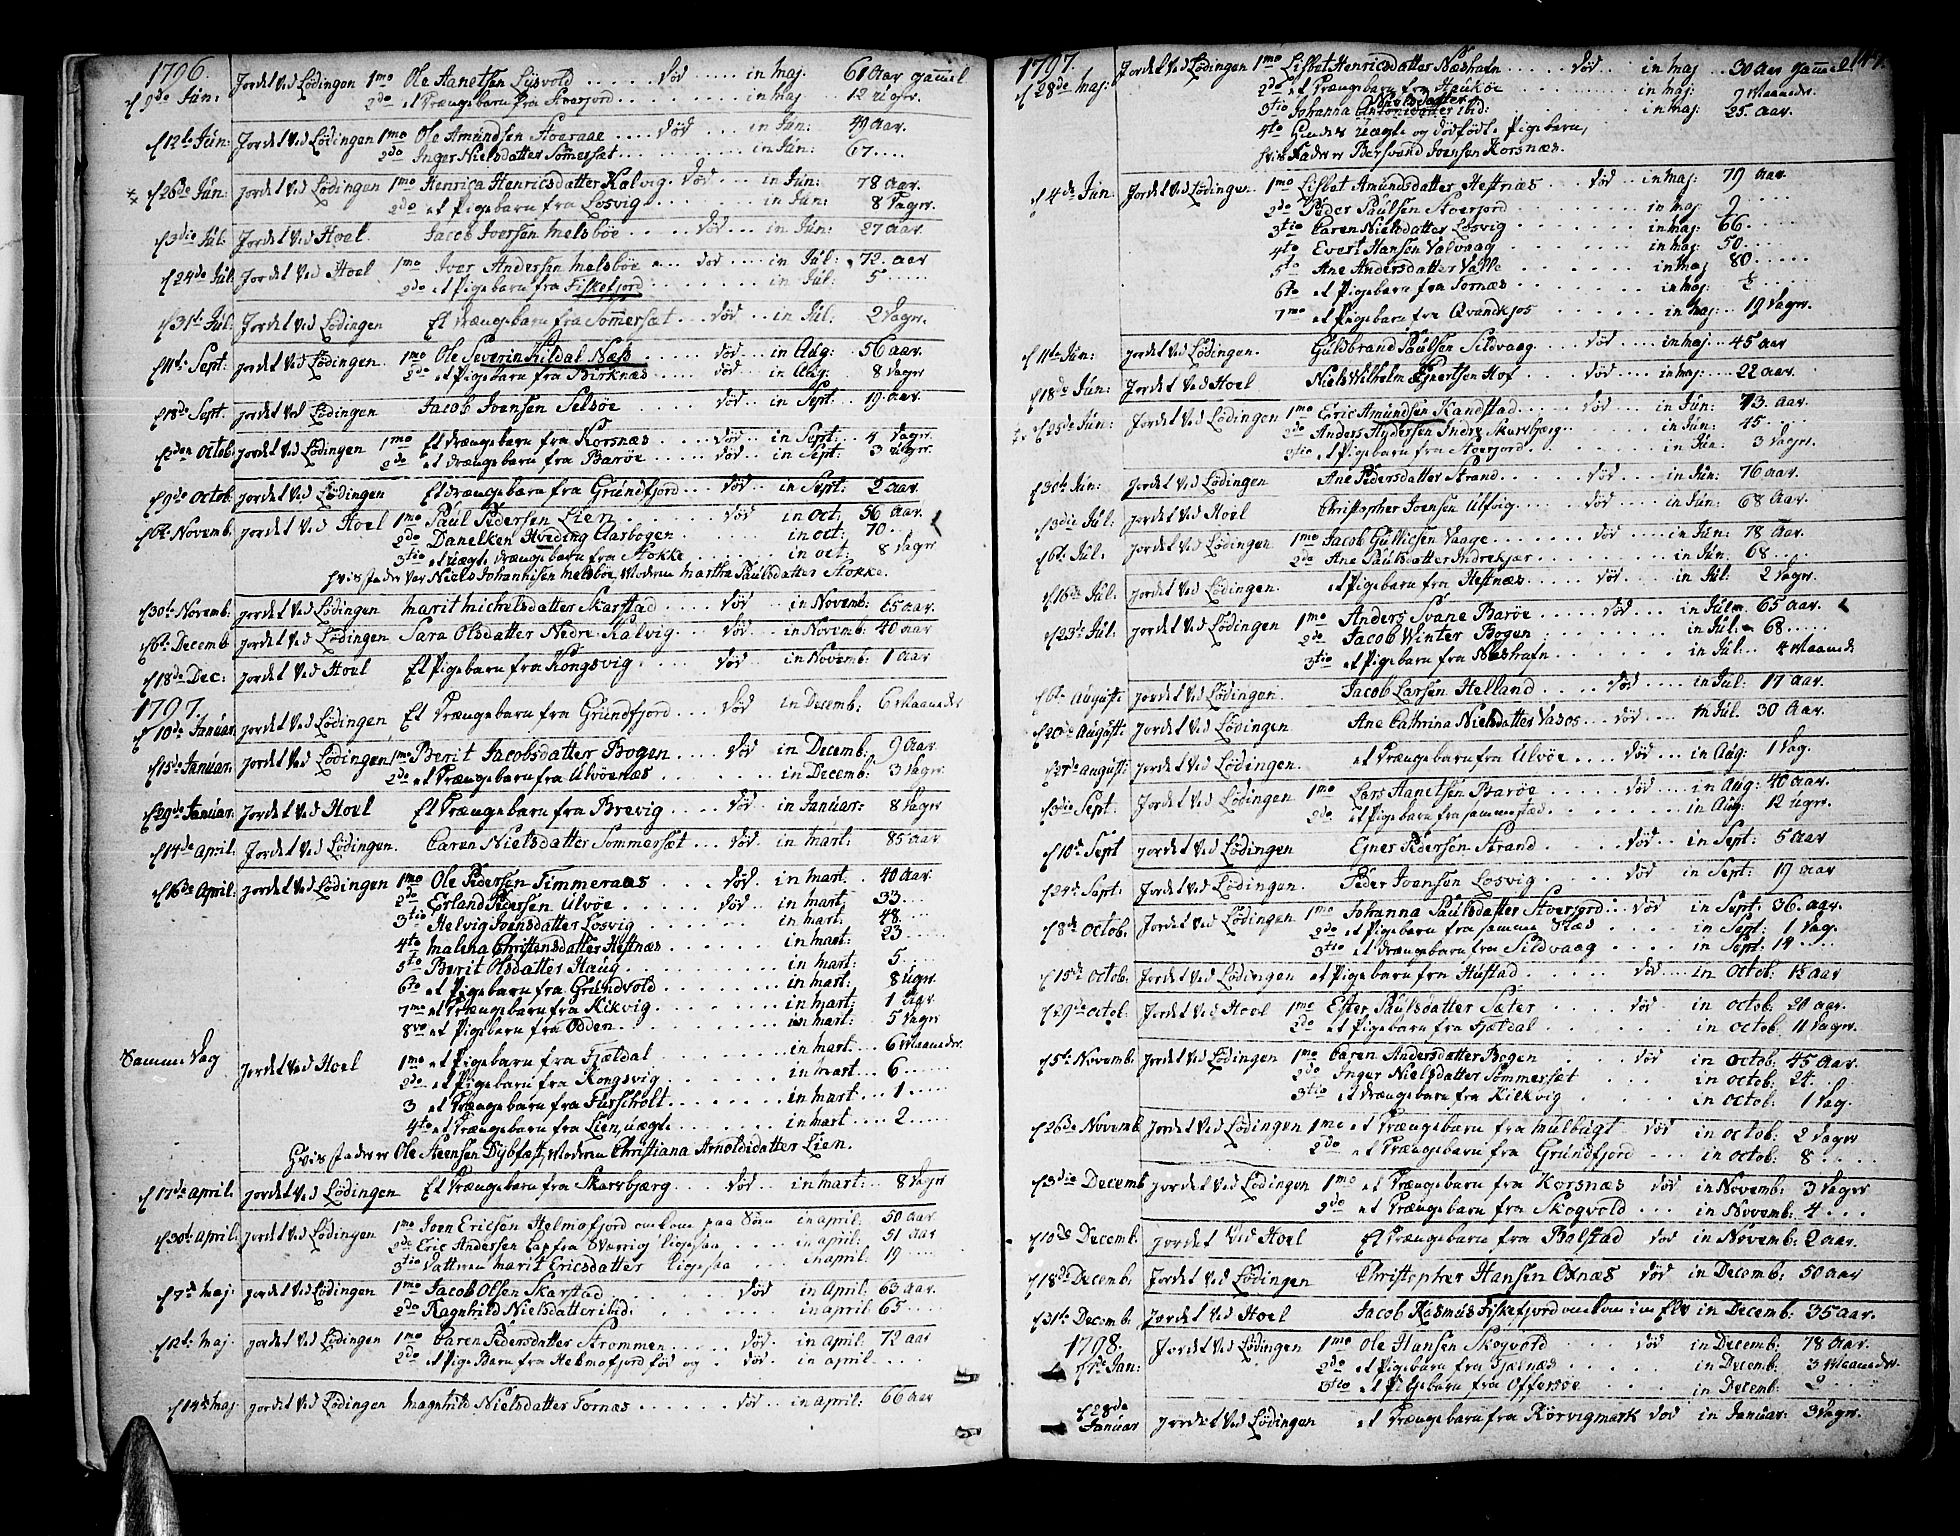 1796.
d 9de Jun: Jordet ved Lødingen 1mo Ole Aanetsen Lysvold ..... død ..... in maj. 61 Aar gammel
2do et Drængebarn fra Stoerfjord ........ in maj 12 uger.
d 12te Jun: Jordet ved Lødingen 1mo Ole Amundsen Stoeraae .... død ... in Jun: 49 Aar.
2do Inger Nielsdatter Sømersæt ........ in Jun: 67....
d 26de Jun: Jordet ved Lødingen 1mo Henrica Henricsdatter Kalvig. død ... in Jun: 78 Aar.
2do et Pigebarn fra Losvig ....... in Jun: 8 Dager.
d 3die Jul: Jordet ved Hoel Jacob Iversen Melsbøe .... død ... in Jun: 27 Aar.
d 24de Jul: Jordet ved Hoel 1mo Iver Andersen Melsbøe .. død ... in Jul: 72. Aar
2do et Pigebarn fra Fiskefjord ....... in Jul: 5 ....
d 31te Jul: Jordet ved Lødingen Et Drængebarn fra Sommersæt ... død ... in Jul: 2 Dager.
d 11te Sept: Jordet ved Lødingen 1mo Ole Severin Kildal Næss ..... død ... in Aug: 56 Aar.
2do et Pigebarn fra Birknæs ..... død ... in Aug: 8 Dager
d 18de Sept. Jordet ved Lødingen Jacob Joensen Selsøe ..... død ... in Sept. 19 Aar.
d 2den Octob: Jordet ved Lødingen 1mo Et Drængebarn fra Korsnæs ... død ... in Sept. 4 Dager.
2do et Drængebarn fra Barøe .... død ... in Sept: 3 Uger.
d 9de Octob: Jordet ved Lødingen Et drængebarn fra Grundfjord ... død ... in Sept: 2 Aar.
d 6te Novemb. Jordet ved Hoel 1mo Paul Pedersen Lien ...... død ... in Oct: 56 Aar.
2do Danelken Hveding Aarbogen ..... in oct: 70..
3tio et uægte drængebarn fra Stokke ..... in oct: 8 Dager
hvis fader var Niels Johannisen Melsbøe, Moderen Martha Paulsdatter Stokke.
d 30te Novemb. Jordet ved Lødingen Marit Michelsdatter Skarstad .... død ... in Novemb: 65 Aar.
d 6te Decemb Jordet ved Lødingen Sara Olsdatter Nedre Kalvig ... død ... in Novemb: 40 Aar
d 18de Dec: Jordet ved Hoel Et Pigebarn fra Kongsvig ..... død ... in Novemb: 1 Aar
1797.
d 10de Januar Jordet ved Lødingen Et Drængebarn fra Grundfjord ... død .. in Decemb: 6 Maaneder
d 15de Januar. Jordet ved Lødingen 1mo Berit Jacobsdatter Bogen .... død .. in Decemb. 9 Aar.
2do et Drængebarn fra Ulvøenæs ...... in Decemb: 3 Dager.
d 29de Januar. Jordet ved Hoel Et Drængebarn fra Brevig .... død .. in Januar: 8 Dager
d 14de April. Jordet ved Lødingen. Caren Nielsdatter Sommersæt .. død .. in Mart: 85 Aar.
d 16de April. Jordet ved Lødingen 1mo Ole Pedersen Timmeraas .... død .. in mart. 40 Aar.
2do Erland Pedersen Ulvøe ..... død .. in mart. 33....
3tio Helvig Ivensdatter Losvig ...... in mart. 48....
4to Malena Christensdatter Heftnæs ...... in mart: 23....
5to Berit Olsdatter Haug ....... in mart. 5...
6to et Pigebarn fra Grundvold ...... in mart: 8 uger.
7mo et Drængebarn fra Kikvig ...... in mart: 1 Aar.
8vo et Pigebarn fra Odden ....... in mart: 5 Dager
Samme Dag Jordet ved Hoel 1mo et Pigebarn fra Fjældal ...... in mart ... 6 Maaneder.
2do et Pigebarn fra Kongsvig ...... in mart ... 6 .....
3 et Drængebarn fra Furscholt ...... in mart ... 1 ....
4to et Drængebarn fra Lien, uægte ...... in mart ... 2 ....
Hvis fader er Ole Steensen Dybfæst, Moderen Christiana Arnoldsdatter Lien.
d 17de April. Jordet ved Lødingen Et Drængebarn fra Skarsbjærg .... død ... in mart: ... 8 Dager
d 30te April. Jordet ved Lødingen 1mo Joen Ericsen Helmofjord omkom paa Søen in april. 50 Aar.
2do Eric Andersen Lap fra Sværrig ligesaa .... in april. 51 Aar
3tio Dattren Marit Ericsdatter ligesaa ... in april. 19 ....
d 7de Maj: Jordet ved Lødingen 1mo Jacob Olsen Skarstad ...... død .. in April. 63 Aar
2do Ragnhild Nielsdatter ibid: ....... in april: 65....
d 12te Maj. Jordet ved Lødingen 1mo Caren Pedersdatter Strommen ... død. .. in april: 72 Aar
2do et PigeBarn fra Helmofjord fød og . død .. in april. ....
d 14de Maj. Jordet ved Lødingen Magnhild Nielsdatter Tornæs ..... død ... in april: 66 Aar
1797. 147.
d 28de Maj: Jordet ved Lødingen 1mo Lisbet Henricsdatter Næshafn ..... død ... in maj ... 30 Aar gammel
2do et Drængebarn fra Haukøe ....... in maj: ... 9 Maaneder.
3tio Johanna ibid: ....... in maj: ... 25. Aar.
4to Hendes uægte og dødfødte Pigebarn,
hvis Fader er Bersvend Joensen Korsnæs.
d 4de Jun: Jordet ved Lødingen 1mo Lisbet Amundsdatter Heftnæs ... død .. in maj: 79 Aar
2do Peder Paulsen Stoerfjord ...... in maj 9. ....
3tio Caren Nielsdatter Losvig ...... in maj: 66....
4to Evert Hansen Valvaag ....... in maj: 50 ....
5to Ane Andersdatter Valle ....... in maj 80.....
6to et Pigebarn fra Tornæs ....... in maj: ½ ....
7mo et Pigebarn fra Qvandkjos ...... in maj: .. 19 Dager.
d 11te Jun: Jordet ved Lødingen. Guldbrand Paulsen Sildvaag .... død ... in maj ... 45 Aar
d 18de Jun: Jordet ved Hoel Niels Wilhelm Ejnertsen Hof .... død ... in maj: ... 22 Aar.
d 25de Jun: Jordet ved Lødingen 1mo Eric Amundsen Kandstad ..... død ... in Jun: 73. Aar.
2do Anders Andersen Indre Skarsbjerg ..... in Jun: 45 ....
3tio et Pigebarn fra Stoerfjord ...... in Jun: 3 Dager.
d 30te Jun: Jordet ved Lødingen Ane Pedersdatter Strand ..... død ... in Jun: 76 Aar.
d 3die Jul: Jordet ved Hoel Christopher Joensen Ulfvig .... død ... in Jun: 68 Aar.
d 6te Jul. Jordet ved Lødingen 1mo Jacob Gullicsen Vaage .... død ... in Jun: 78 Aar.
2do Ane Paulsdatter Indrekjær ..... in Jun. 68 ....
d 16de Jul. Jordet ved Lødingen. et Pigebarn fra Heftnæs ..... død ... in Jul: 2 Dager.
d 23de Jul. Jordet ved Lødingen 1mo Anders Svane Barøe .... død ... in Jul 65 Aar.
2do Jacob Winter Bogen ....... in Jul. 68.....
3tio et Pigebarn fra Næshafn ...... in Jul ... 4 Maaneder
d 6te Augusti Jordet ved Lødingen Jacob Larsen Helland .... død ... in Jul: 17 Aar.
d 20de Augusti Jordet ved Lødingen Ane Cathrina Nielsdatter Vasos ... død ... in Jul. 30 Aar.
d 27de Augusti Jordet ved Lødingen. et Drængebarn fra Ulvøe .... død .. in Aug: 1 Dag.
d 3die Sept. Jordet ved Lødingen 1mo Lars Aanetsen Barøe ...... in Aug: 40 Aar.
2do et Pigebarn fra sammestæd ...... in Aug: 12 uger.
d 10de Sept Jordet ved Lødingen Ejner Pedersen Strand .... død .. in Sept: 5 Aar
d 24de Sept: Jordet ved Lødingen. Peder Ivensen Losvig ..... død ... in Sept: 19 Aar
d 8de Octob. Jordet ved Lødingen 1mo Johanna Paulsdatter Stoerfjord .. død ... in Sept. 36. Aar.
2do et Pigebarn fra samme Stæd ...... in Sept: 1 Dag.
3tio et Drængebarn fra Sildvaag ..... in Sept: 14 ....
d 15de Octob. Jordet ved Lødingen et Pigebarn fra Hustad ..... død ... in Octob: 15 Aar
d 29de Octob. Jordet ved Hoel 1mo Ester Paulsdatter Sæter .... død in octob. 20 Aar.
2do et Pigebarn fra Fjældal ...... in octob: 11 Dager.
d 5te Novemb. Jordet ved Lødingen 1mo Caren Andersdatter Bogen .... død in octob: 45 Aar.
2do Inger Nielsdatter Sømmersæt .... in octob: 24....
3tio et Drængebarn fra Kilkvig .... in octob: 1 Dag.
d 26de Novemb Jordet ved Lødingen 1mo et Drængebarn fra Mulbugt .. død in octob: 2 Dager
2do et Drængebarn fra Grundfjord ... in octob: 8 ....
d 3die Decemb Jordet ved Lødingen 1mo et Drængebarn fra Korsnæs død in Novemb: 3 Dager
2do et Drængebarn fra Skogvold ... in Novemb: 4 ...
d 10de Decemb. Jordet ved Hoel Et Drængebarn fra Balstad død in Novemb: 2 Aar.
d 18de Decemb: Jordet ved Lødingen Christopher Hansen Oxnæs død in Decemb: 50 Aar
d 31te Decemb: Jordet ved Hoel Jacob Rasmus Fiskefjord omkom i en Elv in Decemb: 35 Aar.
1798.
d 7de Jan: Jordet ved Lødingen 1mo Ole Hansen Skogvold .... død in Decemb: 78 Aar.
2do et Pigebarn fra Fjælnæs ..... in Decemb: 3 Maaneder.
3tio et Pigebarn fra Offersøe .... in Decemb: 2 ....
d 28de
Januar Jordet ved Lødingen et Drængebarn fra Rørvigmark død in Januar: 3 Dager.